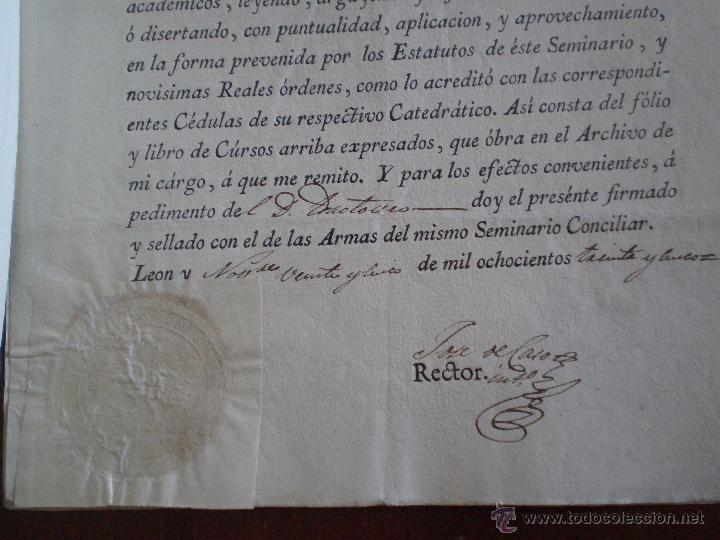 académicos, leyendo,
ó disertando, con puntualidad, aplicacion, y aprovechamiento,
en la forma prevenida por los Estatutos de éste Seminario, y
novisimas Reales órdenes, como lo acreditó con las correspondi-
entes Cédulas de su respectivo Catedrático. Así consta del fólio
y libro de Cúrsos arriba expresados, que óbra en el Archivo de
mi cárgo, á que me remito. Y para los efectos convenientes, á
pedimento del D. doy el presénte firmado
y sellado con el de las Armas del mismo Seminario Conciliar.
Leon y Nov.bre veinte y cinco de mil ochocientos treinta y cinco=
Jose de Caso
Rector. int.o
www.todocoleccion.net